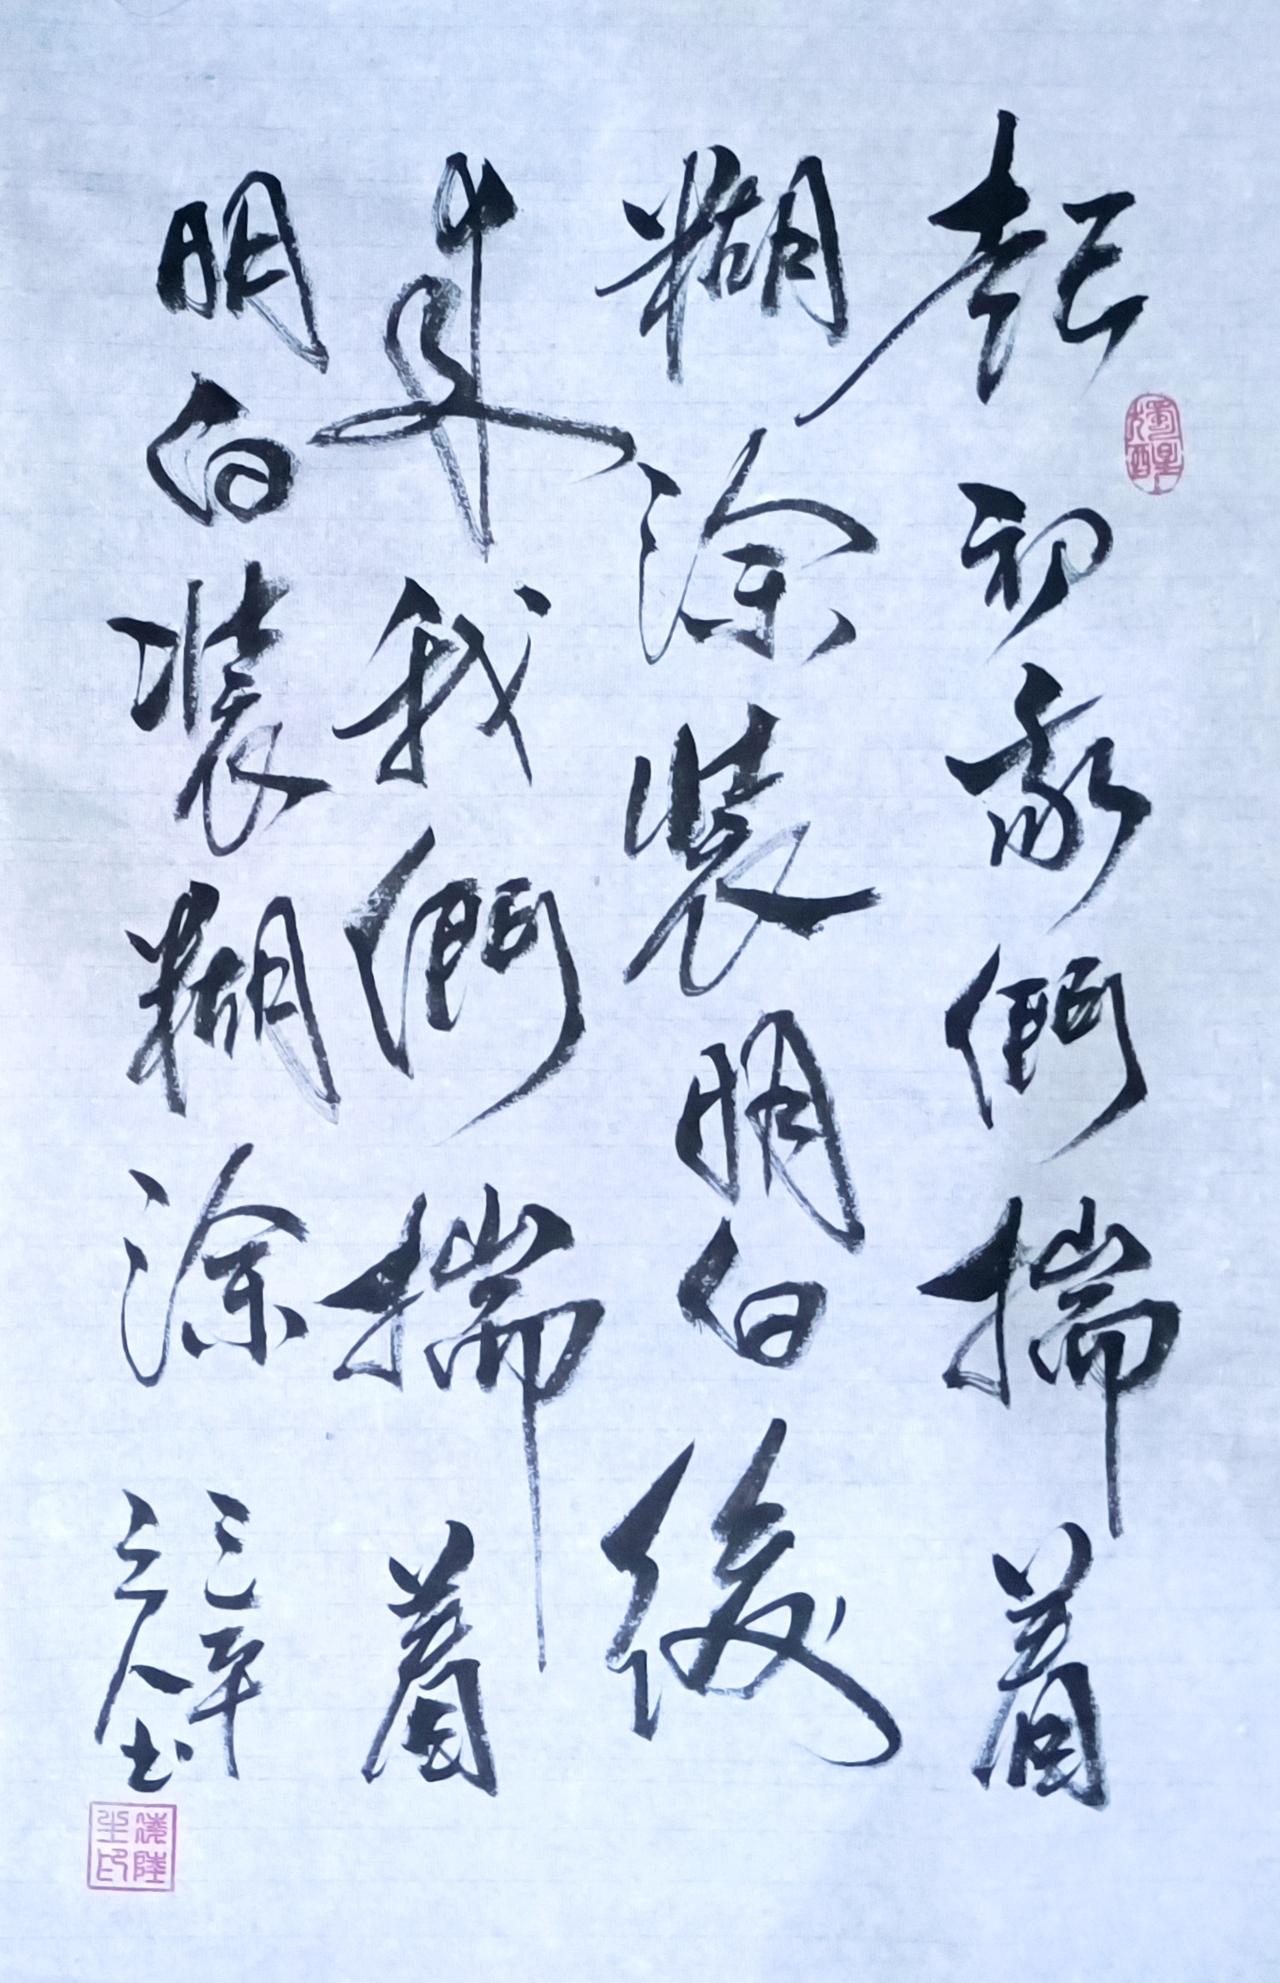 起初我們揣着
糊涂裝明白後
來我們揣着
明白裝糊涂